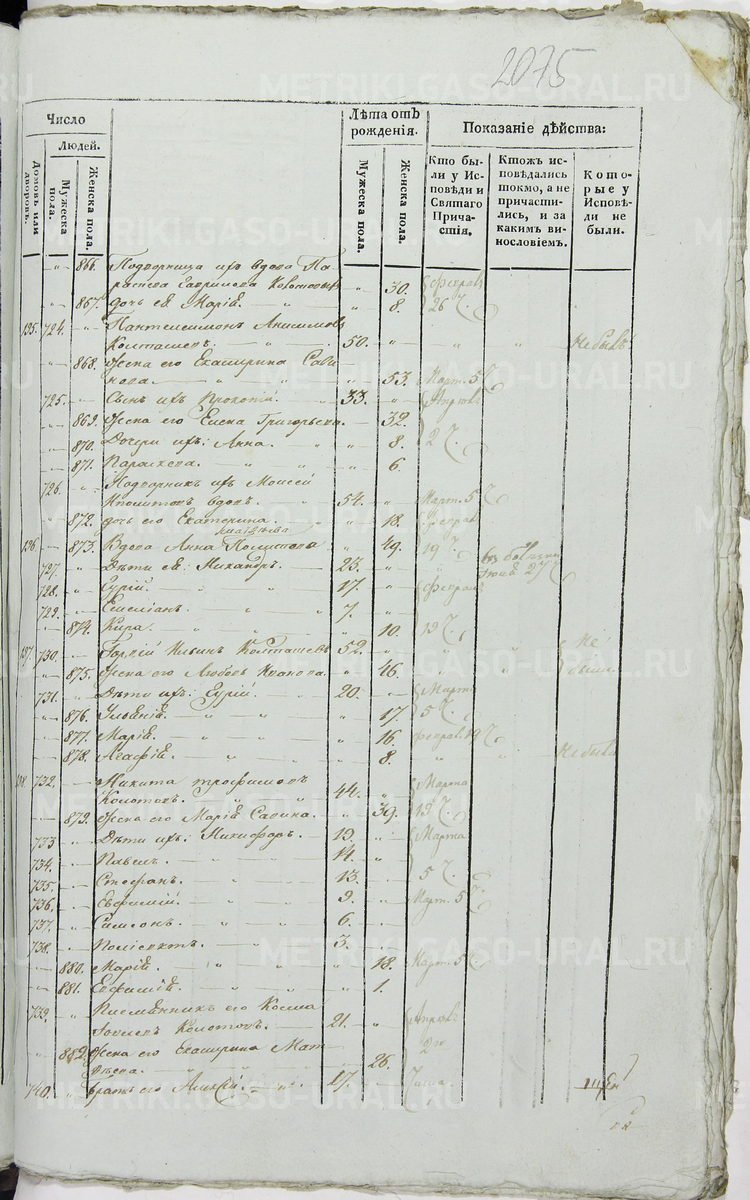 2075
Число
Людей.
Домовъ или дворовъ.
Мужеска пола.
Женска пола.
Лѣта отъ рожденія.
Мужеска пола.
Женска пола.
Показаніе дѣйства:
Кто были у Исповѣди и Святаго Причастія.
Ктожъ исповѣдались токмо, а не причастились, и за какимъ винословіемъ.
Которые у Исповѣди не были.
866. Подворница ихъ вдова Па
раскева Гаврилова 30. Феврал
867. дочь ея Марія. 8. 26 ч.
135. 724. Пантелеимонъ Анисимовъ
Колташевъ. 50. Не былъ
868. Жена его Екатерина Сави
нова. 53. Март. 5 ч.
725. Сынъ ихъ Прокопій. 33. Апрѣл
869. Жена его Елена Григорьева. 32.
870. Дочери ихъ: Анна. 8. 2 ч.
871. Параскева. 6.
726. Подворникъ ихъ Моисей
Ипполитовъ вдовъ. 54. Март. 5 ч.
872. дочь его Екатерина. 18. Феврал
136. 873. Вдова Анна 49. 19 ч.
727. Дѣти ея: Никандръ. 23. Іюня 27 ч.
728. Гурій. 17. Феврал
729. Емеліанъ. 7.
874. Кира. 10. 19 ч.
137. 730. Ильинъ Колташевъ 52. Не
875. Жена его Любовь Иванова. 46. были
731. Дѣти ихъ: Гурій. 20. Март
876. Уліанія. 17. 5 ч.
877. Марія. 16. Феврал 19 ч.
878. Агафія. 8. Не былъ
138. 732. Никита Трофимовъ
Колотовъ. 44. Марта
879. Жена его Марія Савина. 39. 19 ч.
733 Дѣти ихъ: Никифоръ. 19. Марта
734. Павелъ. 14.
735. Стефанъ. 13. 5 ч.
736. Евфимій. 9. Март. 5 ч.
737. Самсонъ. 6.
738. Поліевктъ. 3.
880. Марія. 18. Март. 5 ч.
881. Евфимія. 1.
739. Племянникъ его Косма
Колотовъ. 21. Апрѣл
882. Жена его Екатерина Мат
вѣева. 26. 2го
740. братъ его Алексѣй. 17. Чила.
METRIKI.GASO-URAL.RU